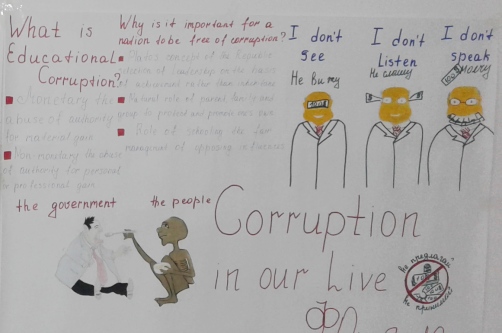 What is
Educational
Corruption?
Monetary the
abuse of authority
for material gain
Non-monetary the abuse
of authority for personal
professional gain
Why is it important for a
nation to be free of corruption?
Plato's concept of the Republic
of leadership on the basis
of achievement rather than
Natural role of parent family and
group to protect and promote own
Role of schooling the fair
management of opposing
I don't
see
Не вижу
I don't
Listen
Не слышу
I don't
speak
Не могу
the government
the people
Corruption
in our Live
не предлагай
не принимай